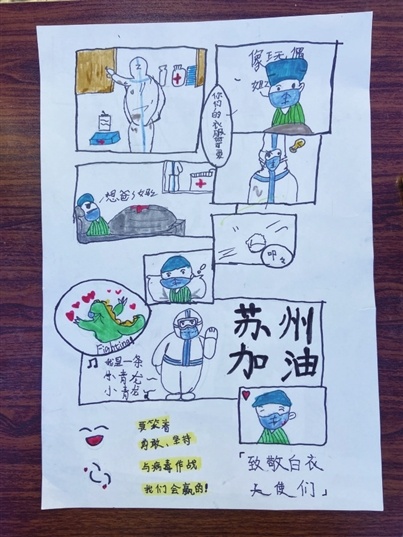 像玩偶
你们的衣服
想爸爸
叩叩
Fighting!
我是一条
小青龙
小青龙
苏州
加油
要笑着
勇敢、坚持
与病毒作战
我们会赢的!
「致敬白衣
天使们」